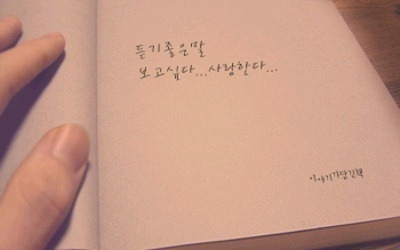 듣기좋은말
보고싶다...사랑한다...
이야기가담긴책